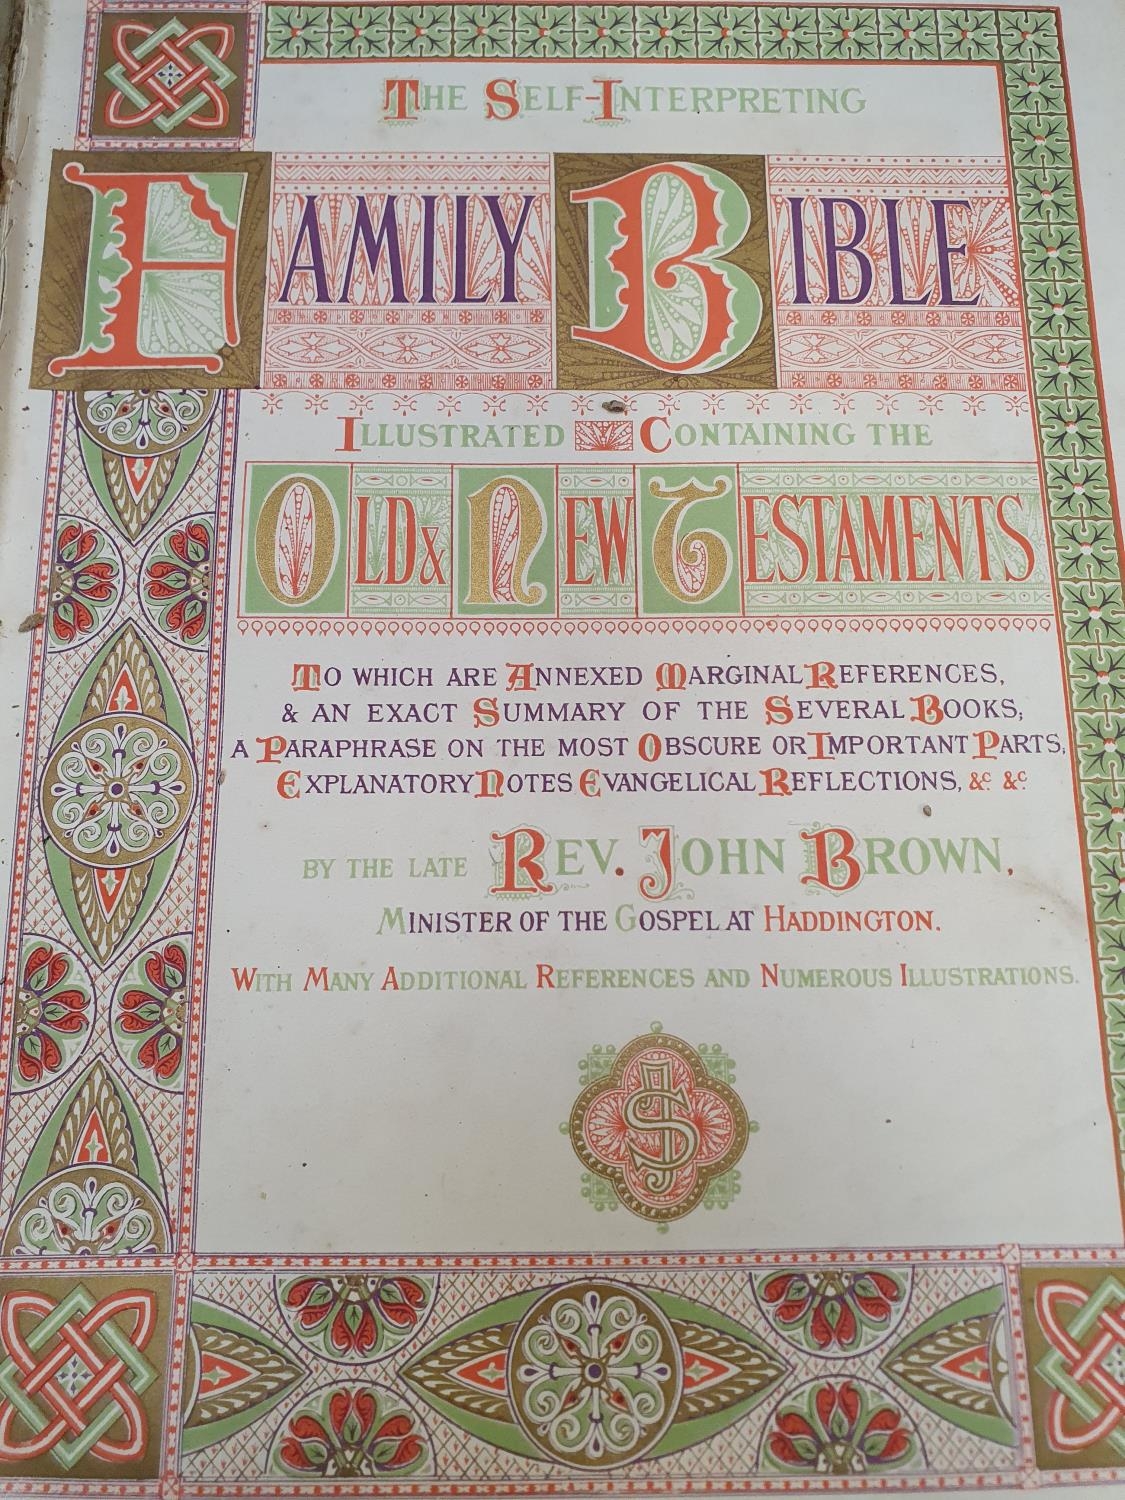 THE SELF-INTERPRETING
FAMILY BIBLE
ILLUSTRATED CONTAINING THE
OLD & NEW TESTAMENTS
TO WHICH ARE ANNEXED MARGINAL REFERENCES,
& AN EXACT SUMMARY OF THE SEVERAL BOOKS,
A PARAPHRASE ON THE MOST OBSCURE OR IMPORTANT PARTS,
EXPLANATORY NOTES EVANGELICAL REFLECTIONS, &c. &c.
BY THE LATE REV. JOHN BROWN,
MINISTER OF THE GOSPEL AT HADDINGTON.
WITH MANY ADDITIONAL REFERENCES AND NUMEROUS ILLUSTRATIONS.